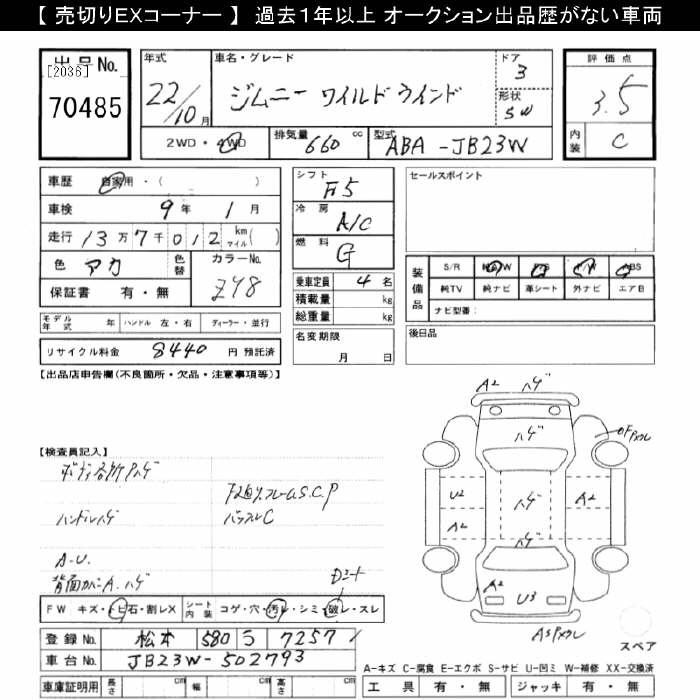 【 売切りEXコーナー 】 過去１年以上 オークション出品歴がない車両
出品No.
[2036]
70485
年式
22/10月
車名・グレード
ジムニー ワイルドウインド
ドア
3
形状
SW
2WD・4WD
排気量 660 cc
型式 ABA-JB23W
評価点
3.5
内装 C
車歴 自家用・( )
車検 9年 1月
走行 13万7千012 km マイル( )
色 アカ 色替
カラーNo.
Z48
保証書 有・無
モデル年式 年 ハンドル 左・右 ディーラー・並行
リサイクル料金 8440 円 預託済
シフト F5
冷房 A/C
燃料 G
乗車定員 4 名
積載量 kg
総重量 kg
名変期限
月 日
セールスポイント
装備品
S/R 純AW P/S P/W ABS
純TV 純ナビ 革シート 外ナビ エアB
ナビ型番：
後日品
【出品店申告欄(不良箇所・欠品・注意事項等)】
【検査員記入】
ボディ各所Pハゲ
ハンドルハゲ
A-U.
背面カバーA.ハゲ
バックスレC
Dミニート
FW キズ・トビ石・割レX
シート内装 コゲ・穴・汚レ・シミ・破レ・スレ
登録No. 松本 580 う 7257
車台No. JB23W-502793
車庫証明用 長さ cm 幅 cm 高さ cm
A2 ハゲ
ハゲ
U2
A2
ハゲ
A2
ハゲ
A2
U3
スペア
A-キズ C-腐食 E-エクボ S-サビ U-凹ミ W-補修 XX-交換済
工具 有・無 ジャッキ 有・無